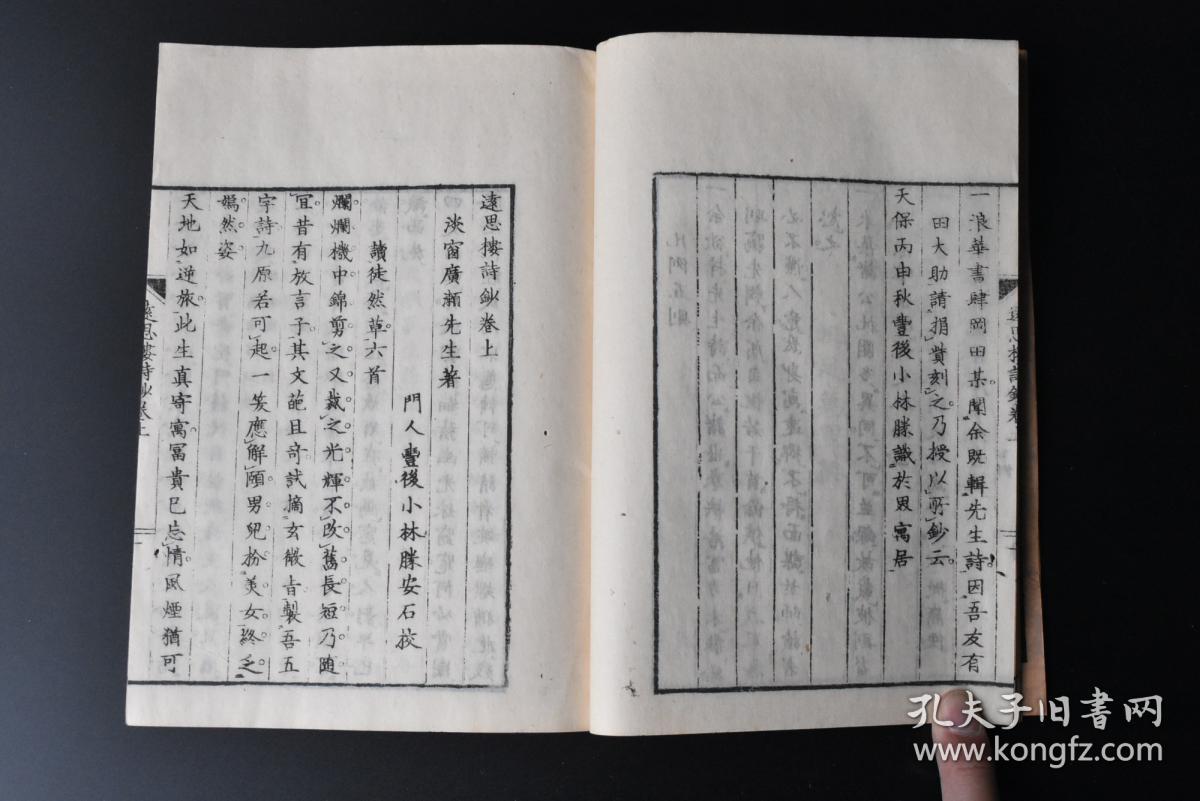 一浪華書肆岡田某聞余既輯先生詩因吾友有
田大助請捐貲刻之乃授以所鈔云
天保丙申秋豐後小林勝識於思寓居
遠思樓詩鈔卷上
遠思樓詩鈔卷上
淡窗廣瀨先生著
門人豐後小林勝安石挍
讀徒然草六首
爛爛機中錦剪之又裁之光輝不改舊長短乃隨
宜昔有放言子其文葩且奇試摘玄微旨製吾五
字詩九原若可起一笑應解頤男兒扮美女終乏
嫣然姿
天地如逆旅此生真寄寓冨貴已忘情風煙猶可
遠思樓詩鈔卷上
孔夫子旧書网
www.kongfz.com